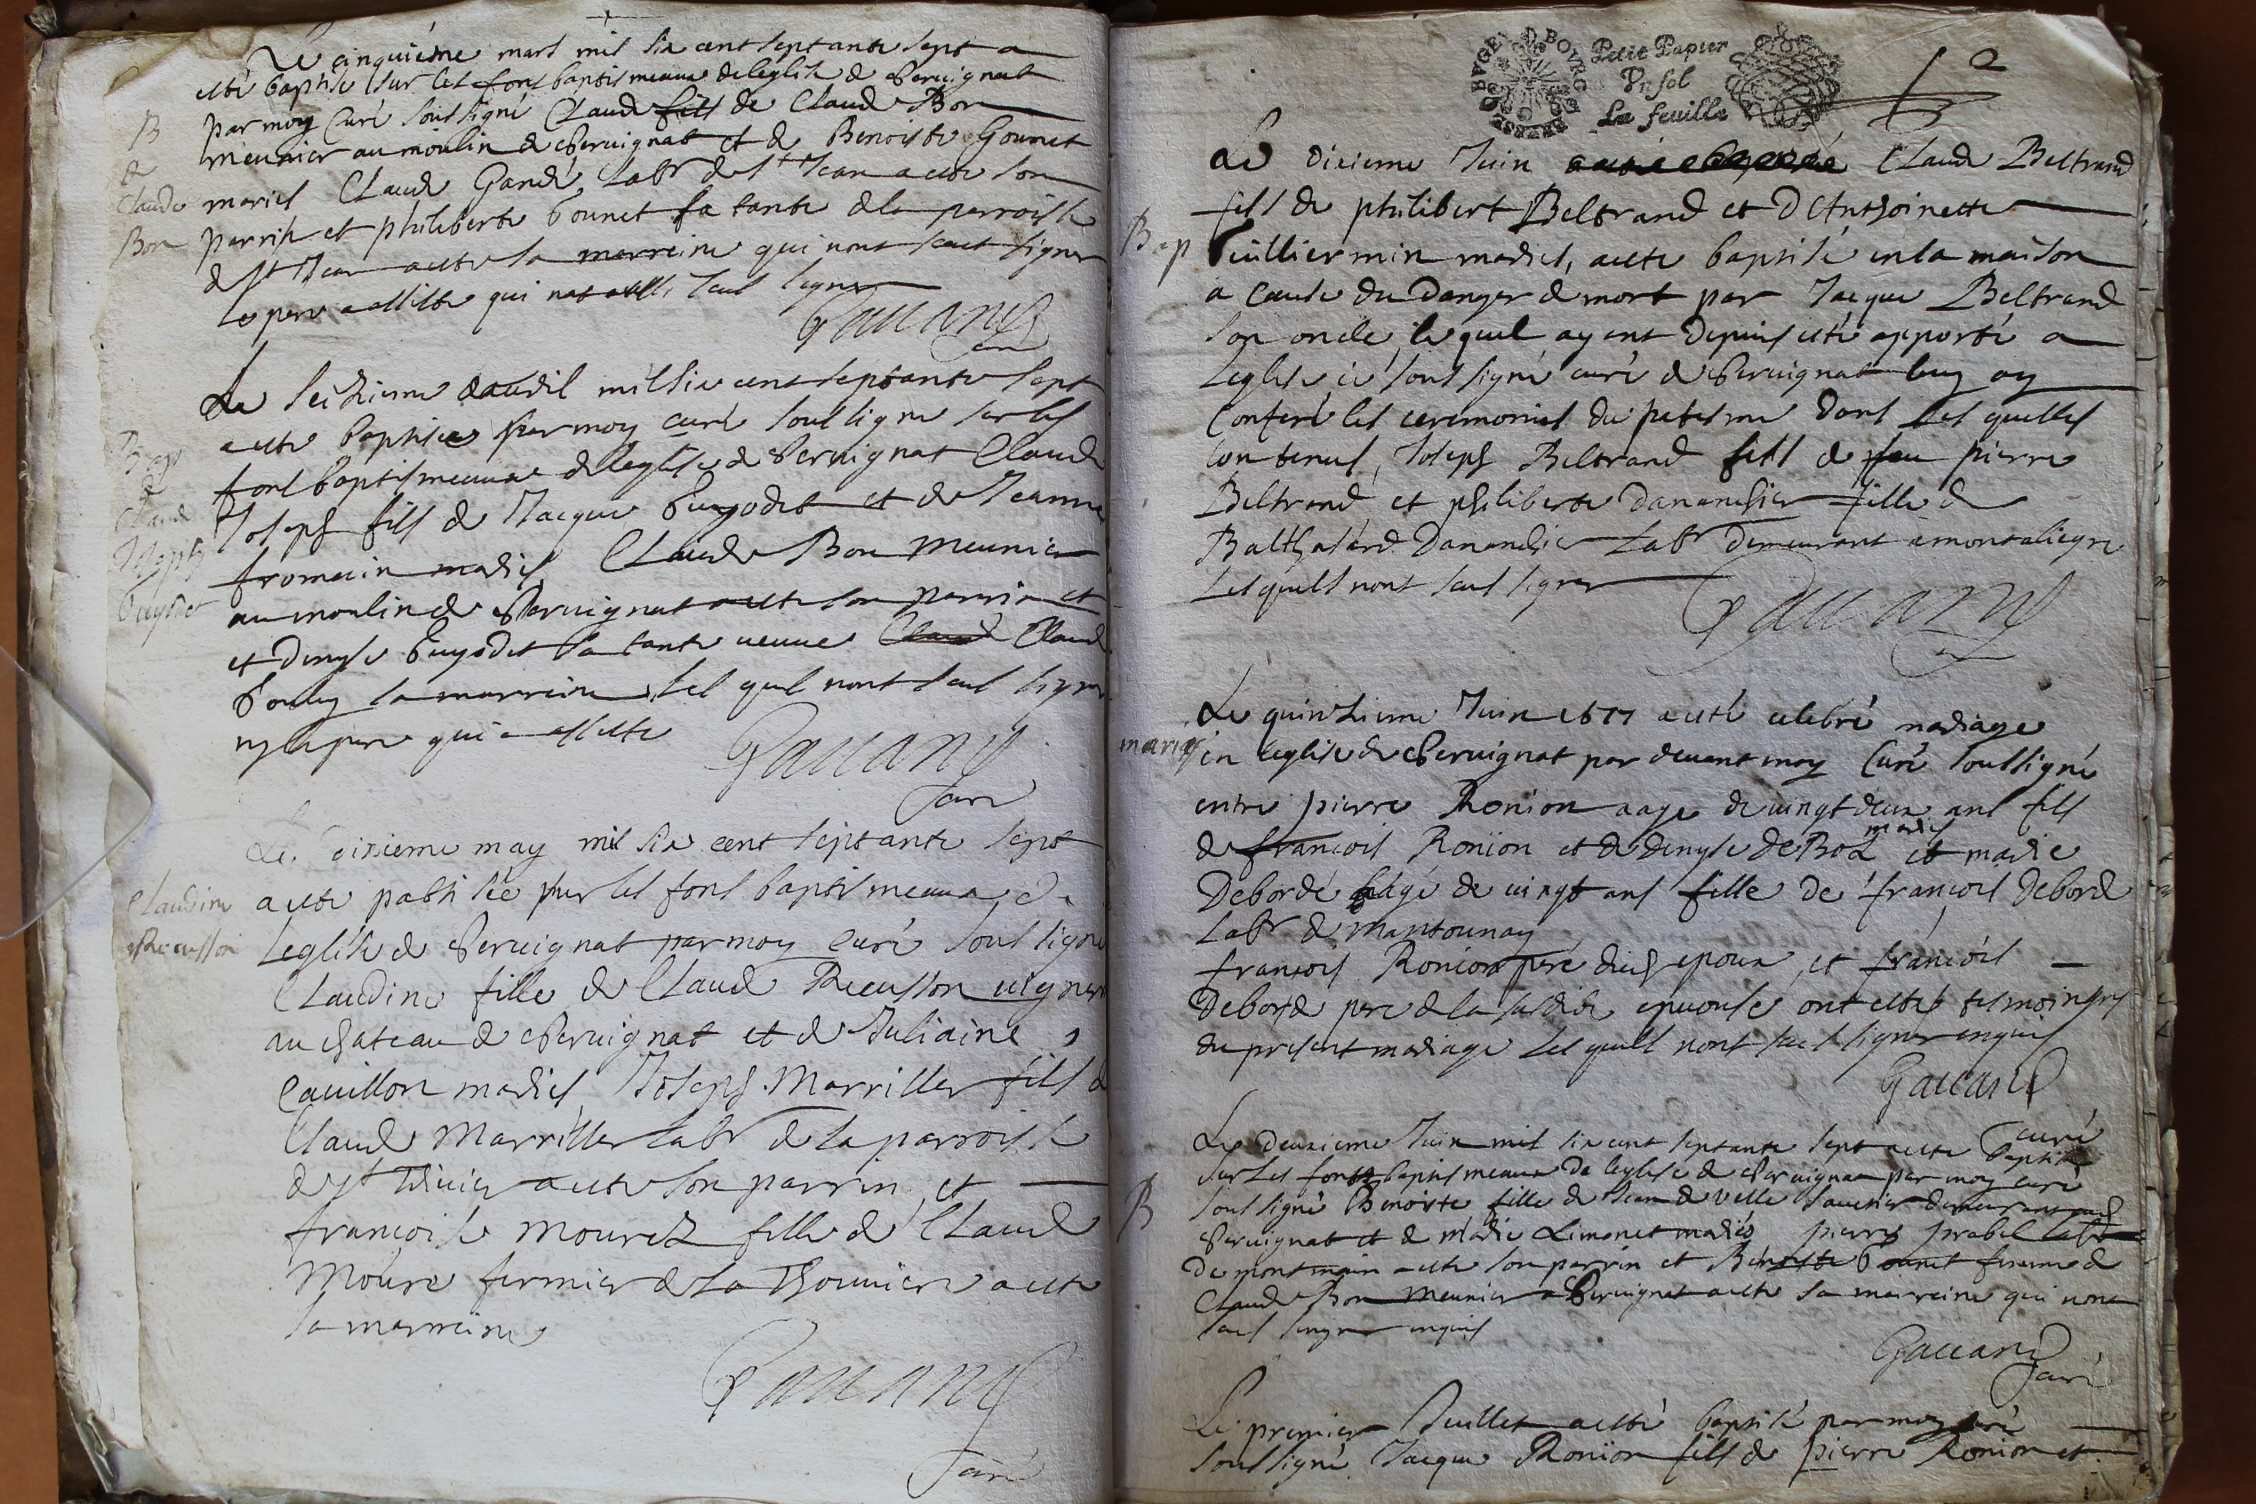 Le cinquiéme mars mil six cent septante sept a
esté baptisé sur les fons baptismeaux de leglise de Pervignat
B
par moy Curé soussigné Claude fils de Claude Bon
meunier au moulin de Pervignat et de Benoiste Gounet
de
Claude
mariés Claude Gandé Labr de St Jean a esté son
Bon
parrin et philiberte Gounet sa tante de la parroisse
de St Jean a esté sa marreine qui nont sceut signer
le pere a assisté qui na sceut signer
Gaccand
curé
Le seizieme davril mil six cent septante sept
a esté baptisé par moy curé soussigné sur les
Bap
fons baptismeaux de leglise de Pervignat Claude
de
Claude
Joseph fils de Jacque Puyodet et de Jeanne
Joseph
fromecin mariés Claude Bon meunier
Puyodet
au moulin de Pervignat a esté son parrin et
et Denyse Puyodet sa tante veuve Claude
la marreine lesquels nont sceut signer
ny le pere qui a assisté
Gaccand
curé
Le dixieme may mil six cent septante sept
Claudine
a esté pabtisée sur les fons baptismeaux de
Recusson
leglise de Pervignat par moy curé soussigné
Claudine fille de Claude Recusson vigneron
au chateau de Pervignat et de Juliaine
Cavillon mariés Joseph Marriller fils de
Claude Marriller labr de la parroisse
de St a esté son parrin et
francoise Mourez fille de Claude
Moure fermier de la Thouviere a esté
sa marreine
Gaccand
curé
BOURG BUGEY
Petit Papier
Un sol
La feuille
Le dixieme Juin Claude Beltrand
fils de philibert Beltrand et D Anthoinette
Bap
Vuilliermin mariés, a esté baptisé en la maison
a cause du danger de mort par Jacque Beltrand
son oncle, le quel ayant depuis esté apporté a
Leglise ie soussigné curé de Pervignat luy ay
Conferé les ceremonies du pabtesme dans les quelles
contenues, Joseph Beltrand fils de feu pierre
Beltrand et philiberte Dananchier fille de
Balthasard Dananchier Labr demeurant a montaliegre
Lesquels nont sceut signer
Gaccand
curé
Le quinzieme Juin 1677 a esté celebré mariage
mariage
en leglise de Pervignat par devant moy Curé soussigné
entre pierre Ronion aagé de vingt deux ans fils
de francois Ronion et de denyse de Boz mariés et marie
Debordé aagé de vingt ans fille de francois Debord
Labr de Mantounay
francois Ronion pere dudit epoux, et francois
Deborde pere de la susdite epouse ont esté tesmoings
du present mariage Lesquels nont sceut signer enquis
Gaccand
curé
Le deuxieme Juin mil six cent septante sept a esté baptisé
sur les fons baptismeaux de leglise de Pervignat par moy curé
B
soussigné Benoiste fille de Jean de velle saunier demeurant
Pervignat et de Marie Limonet mariés pierre prabel labr
de montmain a esté son parrin et Benoiste Gounet femme de
Claude Bon meunier a Pervignat a esté sa marreine qui nont
sceut signer enquis
Gaccand
curé
Le premier Juillet a esté baptisé par moy curé
soussigné Jacque Ronion fils de pierre Ronion et